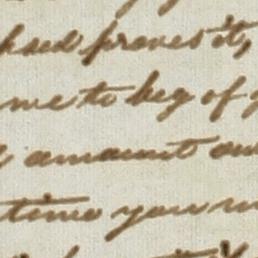 proves it,
me to beg of
amount
time you